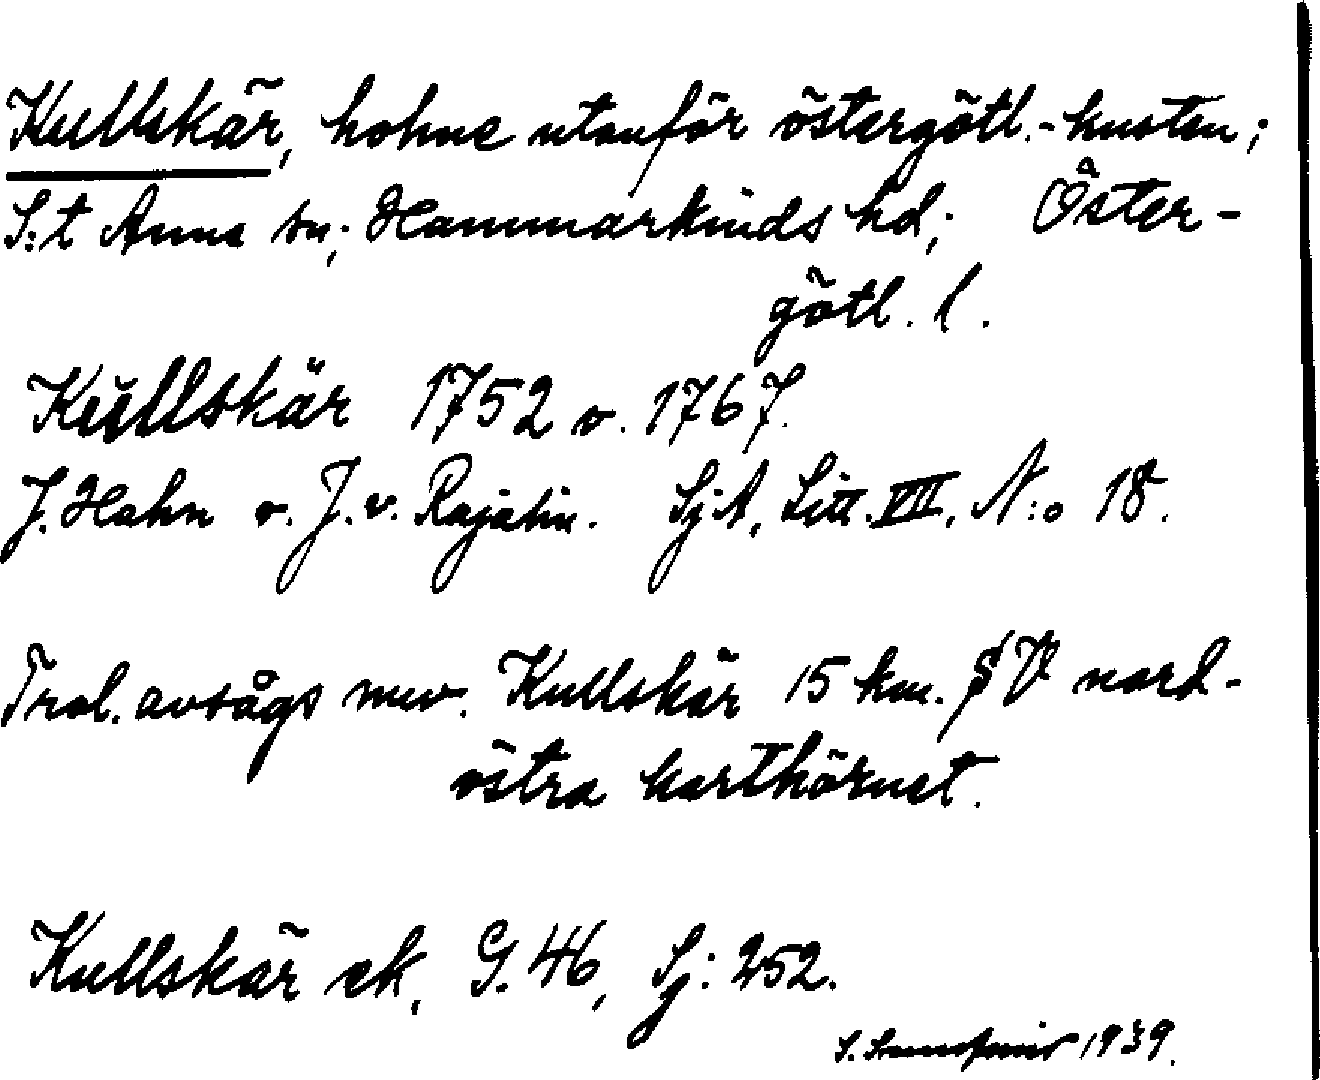 Kullskär, holme utanför östergötl.-kusten;
S:t Anna sn; Hammarkinds hd; Öster-
götl. l.
Kŭllskär 1752 o. 1767.
J. Hahn o. J. v. Rajalin. SjA, Litt. VII, N:o 18.
Trol. avsågs nuv. Kullskär 15 km. SV nord-
östra karthörnet.
Kullskär ek, G. 46, Sj: 252.
S. 1939.